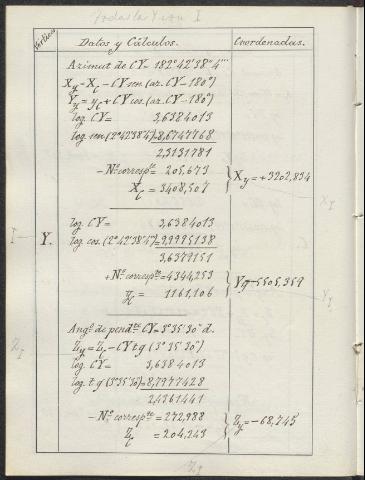 Todas las Y son I
Vértices
Datos y Cálculos.
Coordenadas.
Azimut de CY = 182°42'38"4
Xy = Xc - CY sen (az. CY - 180°)
Yy = yc + CY cos. (az. CY - 180°)
log. CY = 3,6384013
log. sen (2°42'38"4) = 8,6747768
2,3131781
- Nº. correspte. = 205,673
Xc = 3408,507
Xy = +3202,834
XI
log. CY = 3,6384013
I
Y.
log. cos. (2°42'38"4) = 9,9995138
3,6379151
+ Nº. correspte. = 4344,253
yc = 1161,106
Yy = 5505,359
YI
Angº. de pendte. CY = 3°35'30" d.
Zy = Zc - CY tg (3°35'30")
ZI
log. CY = 3,6384013
log. tg (3°35'30") = 8,7977428
2,4361441
- Nº. correspte. = 272,988
Zc = 204,243
Zy = -68,745
ZI